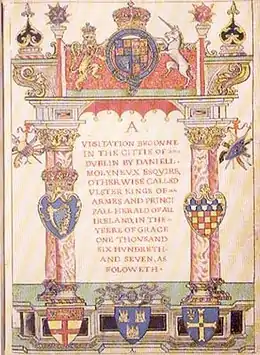 A
VISITATION BEGONNE
IN THE CITTIE OF
DUBLIN BY DANIELL
MOLYNEUX ESQUIRE,
OTHERWISE CALLED
VLSTER KINGE OF
ARMES AND PRINCI
PALL HERALD OF ALL
IRELAND, IN THE
YEERE OF GRACE
ONE THOUSAND
SIX HUNDRETH
AND SEVEN, AS
FOLOWETH